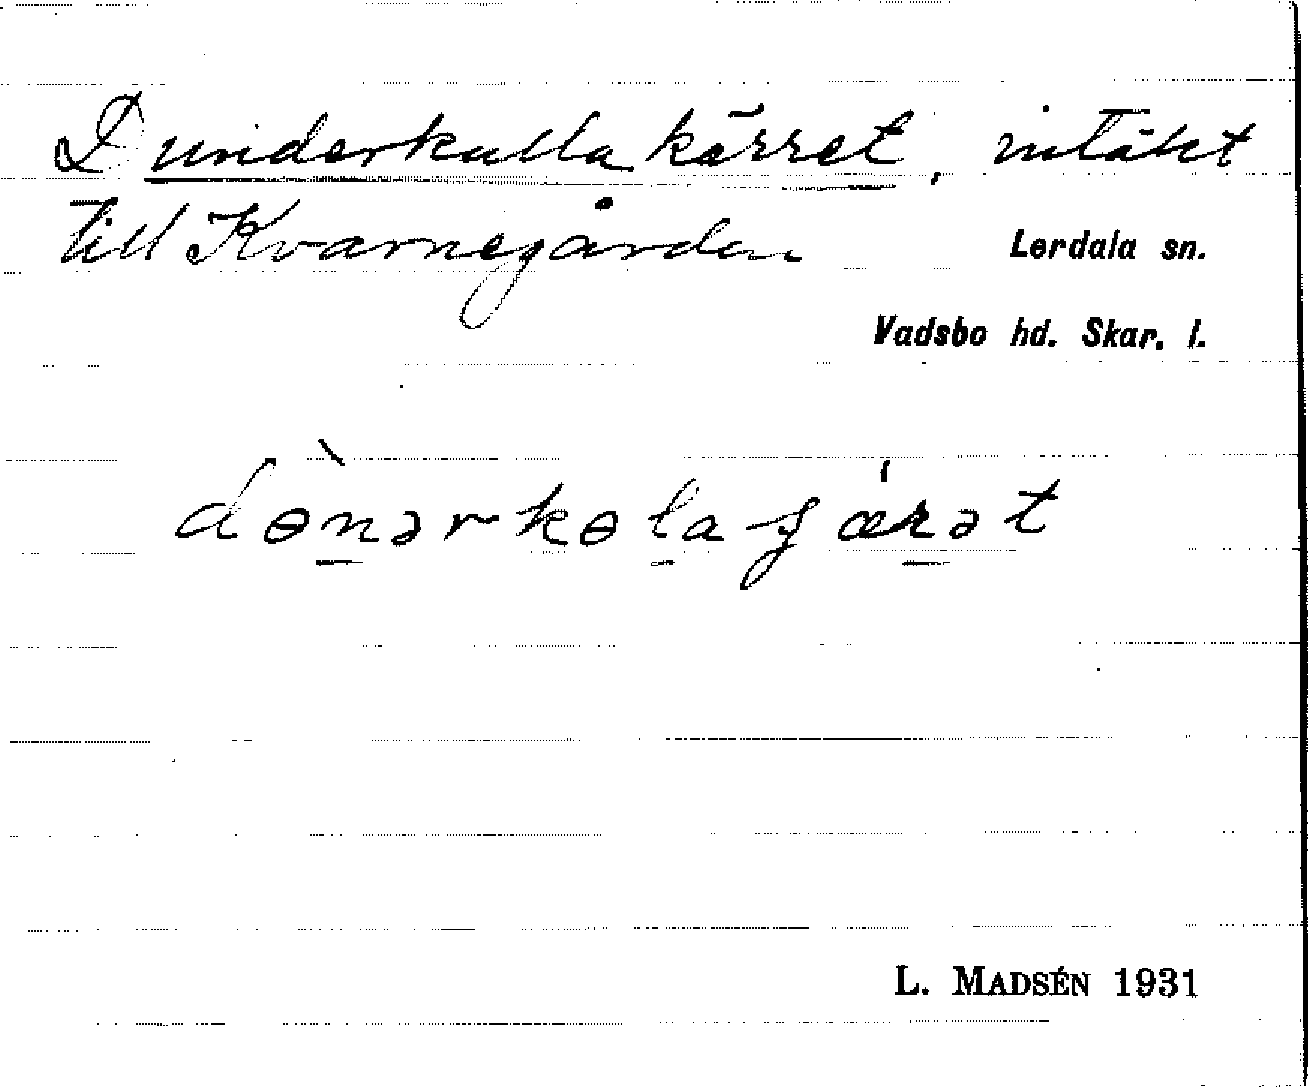 Dunderkulla kärret, intäkt
till Kvarnegården
Lerdala sn.
Vadsbo hd. Skar. l.
dɵ̀nərkɵlaʃǽrət
L. MADSÉN 1931